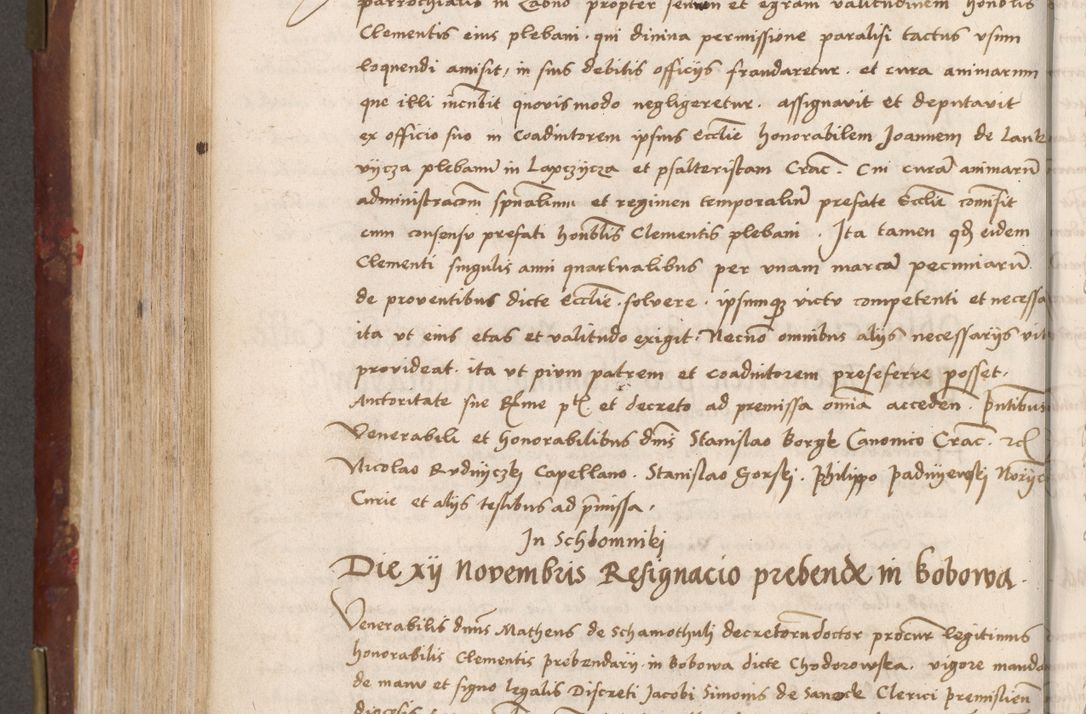 parrochialis in Labno propter senium et egram valitudinem honoblis
Clementis eius plebani . qui divina permissione paralisi tactus usum
loquendi amisit, in suis debitis officijs fraudaretur . et cura animarum
que illi incubit quovismodo negligeretur . assignavit et deputavit
ex officio suo in Coadiutorem ipsius Ecclie honorabilem Joannem de Lank
vijcza plebanu in Lapczijcza et psalteristam Crac . Cui cura animaru
administracom spualium et regimen temporaliu prefate Ecclie comisit
cum consensu prefati honoblis Clementis plebani . Ita tamen qd eidem
Clementi singulis anni quartualibus per unam marca pecuniaru
de proventibus dicte Ecclie . solvere . ipsumq victu competenti et necessa
ita ut eius etas et valitudo exigit . Necno omnibus alijs necessarijs vit
provideat . ita ut pium patrem et coadiutorem preseferre posset .
Auctoritate sue Rme pt et decreto ad premissa omia acceden . pntibus
Venerabili et honorabilibus dnis Stanislao Borgk Canonico Crac .
Nicolao Rudnijczkj Capellano . Stanislao Gorskj . Philippo Padnijewskj Norijs
Curie et alijs testibus ad pmissa .
In Schlomnikj
Die xij Novembris Resignacio prebende in Bobowa .
Venerabilis dnus Matheus de Schamothulj decretoru doctor procur legitimus
honorabilis Clementis prebendarij in Bobowa dicte Chodorowska . vigore manda
de manu et signo legalis Discreti Jacobi Simonis de Sanock Clerici premislien
diocesis